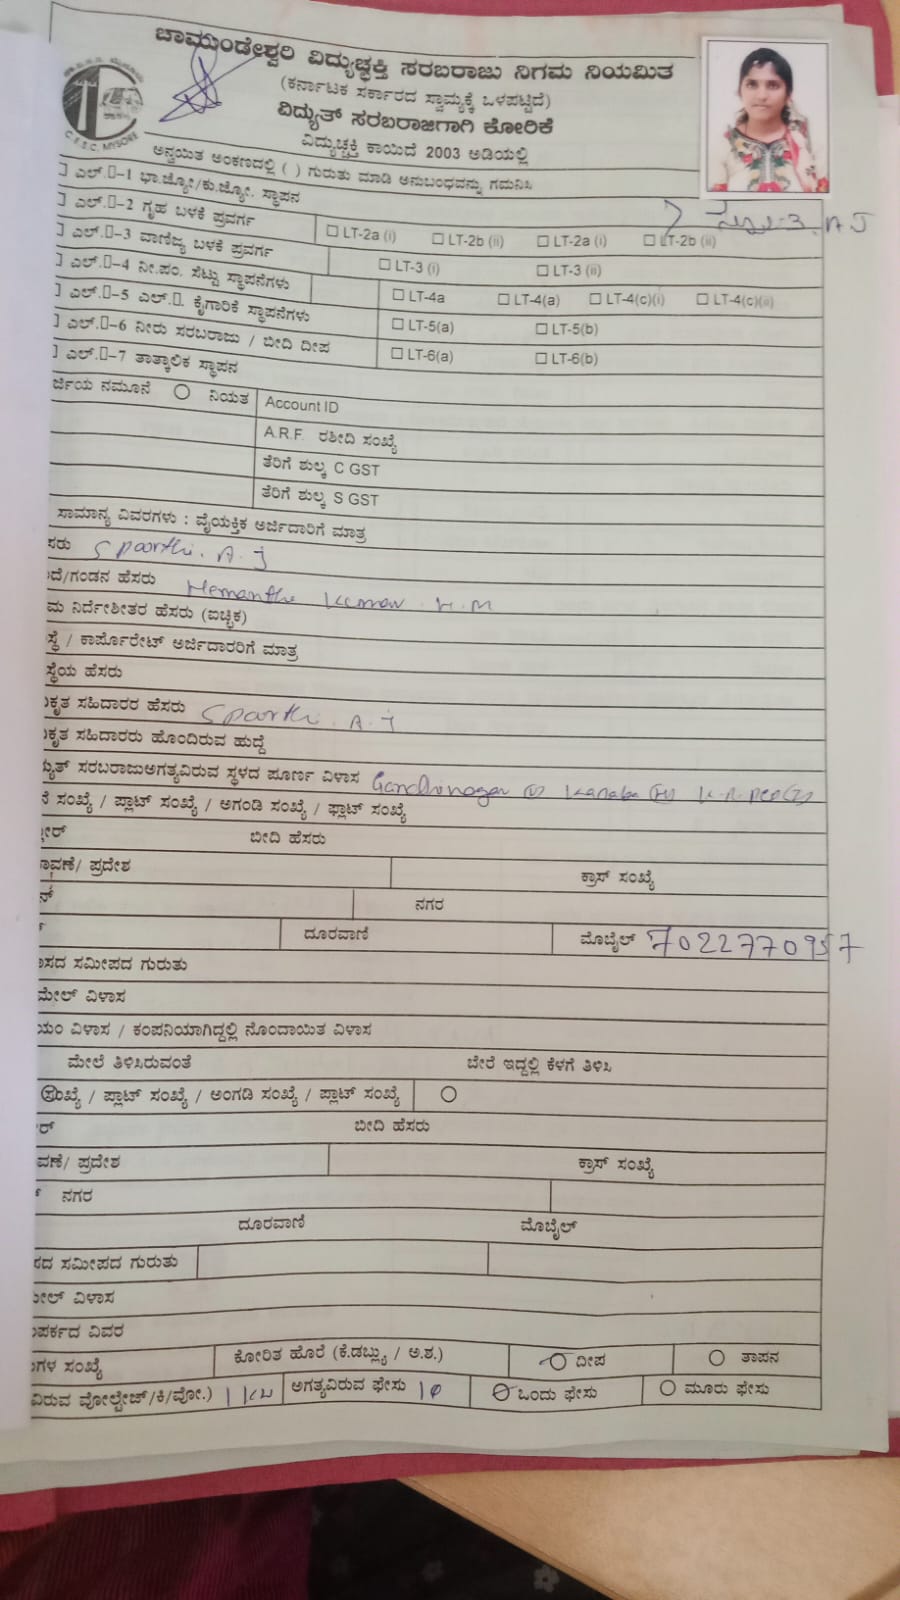 ಚಾಮುಂಡೇಶ್ವರಿ ವಿದ್ಯುಚ್ಛಕ್ತಿ ಸರಬರಾಜು ನಿಗಮ ನಿಯಮಿತ
(ಕರ್ನಾಟಕ ಸರ್ಕಾರದ ಸ್ವಾಮ್ಯಕ್ಕೆ ಒಳಪಟ್ಟಿದೆ)
ವಿದ್ಯುತ್ ಸರಬರಾಜಿಗಾಗಿ ಕೋರಿಕೆ
ವಿದ್ಯುಚ್ಛಕ್ತಿ ಕಾಯಿದೆ 2003 ಅಡಿಯಲ್ಲಿ
C.E.S.C, MYSORE
ಅನ್ವಯಿತ ಅಂಕಣದಲ್ಲಿ ( ) ಗುರುತು ಮಾಡಿ ಅನುಬಂಧವನ್ನು ಗಮನಿಸಿ
ಎಲ್.-1 ಭಾ.ಜ್ಯೋ/ಕು.ಜ್ಯೋ. ಸ್ಥಾಪನ
ಎಲ್.-2 ಗೃಹ ಬಳಕೆ ಪ್ರವರ್ಗ LT-2a (i) LT-2b (ii) LT-2a (i) LT-2b (ii)
ಎಲ್.-3 ವಾಣಿಜ್ಯ ಬಳಕೆ ಪ್ರವರ್ಗ LT-3 (i) LT-3 (ii)
ಎಲ್.-4 ನೀ.ಪಂ. ಸೆಟ್ಟು ಸ್ಥಾಪನೆಗಳು LT-4a LT-4(a) LT-4(c)(i) LT-4(c)(ii)
ಎಲ್.-5 ಎಲ್.. ಕೈಗಾರಿಕೆ ಸ್ಥಾಪನೆಗಳು LT-5(a) LT-5(b)
ಎಲ್.-6 ನೀರು ಸರಬರಾಜು / ಬೀದಿ ದೀಪ LT-6(a) LT-6(b)
ಎಲ್.-7 ತಾತ್ಕಾಲಿಕ ಸ್ಥಾಪನ
ರ್ಜಿಯ ನಮೂನೆ ನಿಯತ Account ID
A.R.F. ರಶೀದಿ ಸಂಖ್ಯೆ
ತೆರಿಗೆ ಶುಲ್ಕ C GST
ತೆರಿಗೆ ಶುಲ್ಕ S GST
ಸಾಮಾನ್ಯ ವಿವರಗಳು : ವೈಯಕ್ತಿಕ ಅರ್ಜಿದಾರಿಗೆ ಮಾತ್ರ
ಸರು Spoorthi. A. J
ದೆ/ಗಂಡನ ಹೆಸರು Hemantha Kumar. H. M
ಮ ನಿರ್ದೇಶಿತರ ಹೆಸರು (ಐಚ್ಛಿಕ)
ಸ್ಥೆ / ಕಾರ್ಪೊರೇಟ್ ಅರ್ಜಿದಾರರಿಗೆ ಮಾತ್ರ
ಸ್ಥೆಯ ಹೆಸರು
ಕೃತ ಸಹಿದಾರರ ಹೆಸರು Spoorthi. A. J
ಕೃತ ಸಹಿದಾರರು ಹೊಂದಿರುವ ಹುದ್ದೆ
ದ್ಯುತ್ ಸರಬರಾಜುಅಗತ್ಯವಿರುವ ಸ್ಥಳದ ಪೂರ್ಣ ವಿಳಾಸ Gandhinagar (V) (H) (T)
ನೆ ಸಂಖ್ಯೆ / ಪ್ಲಾಟ್ ಸಂಖ್ಯೆ / ಅಗಂಡಿ ಸಂಖ್ಯೆ / ಫ್ಲಾಟ್ ಸಂಖ್ಯೆ
ಬೀದಿ ಹೆಸರು
ವಣೆ/ ಪ್ರದೇಶ ಕ್ರಾಸ್ ಸಂಖ್ಯೆ
ನಗರ
ದೂರವಾಣಿ ಮೊಬೈಲ್ 7022770957
ಾಸದ ಸಮೀಪದ ಗುರುತು
ಮೇಲ್ ವಿಳಾಸ
ಯಂ ವಿಳಾಸ / ಕಂಪನಿಯಾಗಿದ್ದಲ್ಲಿ ನೊಂದಾಯಿತ ವಿಳಾಸ
ಮೇಲೆ ತಿಳಿಸಿರುವಂತೆ ಬೇರೆ ಇದ್ದಲ್ಲಿ ಕೆಳಗೆ ತಿಳಿಸಿ
ಸಂಖ್ಯೆ / ಪ್ಲಾಟ್ ಸಂಖ್ಯೆ / ಅಂಗಡಿ ಸಂಖ್ಯೆ / ಪ್ಲಾಟ್ ಸಂಖ್ಯೆ
ಬೀದಿ ಹೆಸರು
ವಣೆ/ ಪ್ರದೇಶ ಕ್ರಾಸ್ ಸಂಖ್ಯೆ
ನಗರ
ದೂರವಾಣಿ ಮೊಬೈಲ್
ಸದ ಸಮೀಪದ ಗುರುತು
ಮೇಲ್ ವಿಳಾಸ
ಂಪರ್ಕದ ವಿವರ
ಗಳ ಸಂಖ್ಯೆ ಕೋರಿತ ಹೊರೆ (ಕೆ.ಡಬ್ಲ್ಯು / ಅ.ಶ.) ದೀಪ ತಾಪನ
ವಿರುವ ವೋಲ್ಟೇಜ್/ಕಿ/ವೋ.) ಅಗತ್ಯವಿರುವ ಫೇಸು 1φ ಒಂದು ಫೇಸು ಮೂರು ಫೇಸು